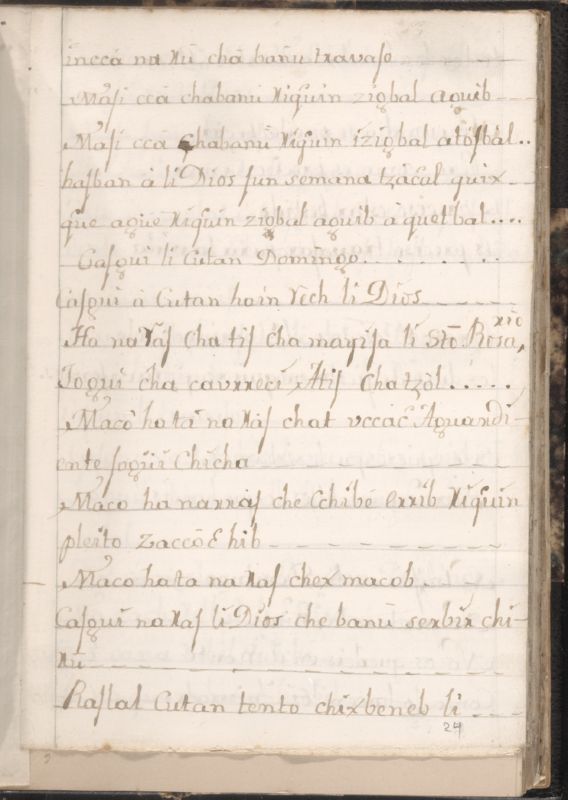 inccá na xú chá banú travaʃo
Maʃi ccá chabanú xiguin zigbal aguib
Maʃi cca chabanú xiguin izigbal atóʃbal..
haʃban á li Dios ʃun semana tzacal quix
que ague xiguin zigbal aguib á quetbal....
Caʃgui li Cutan Domingo..........
Caʃgui á Cutan hoin rech li Dios
Ha na xaʃ cha tiʃ cha mayiʃa li Stō Rosa,rio
Jogui cha cavrreci xtiʃ chatzól.....
Maco hata na xaʃ chat vccác Aguardi-
ente ʃogui Chicha
Maco ha narraʃ che Cchibé errib xiguin
pleito zaccó Ɛ hib
Maco hata na xaʃ chex macob
Caʃgui na xaʃ li Dios che banú serbir chi-
xu
Raʃlal Cutan tento chixbeneb li
24